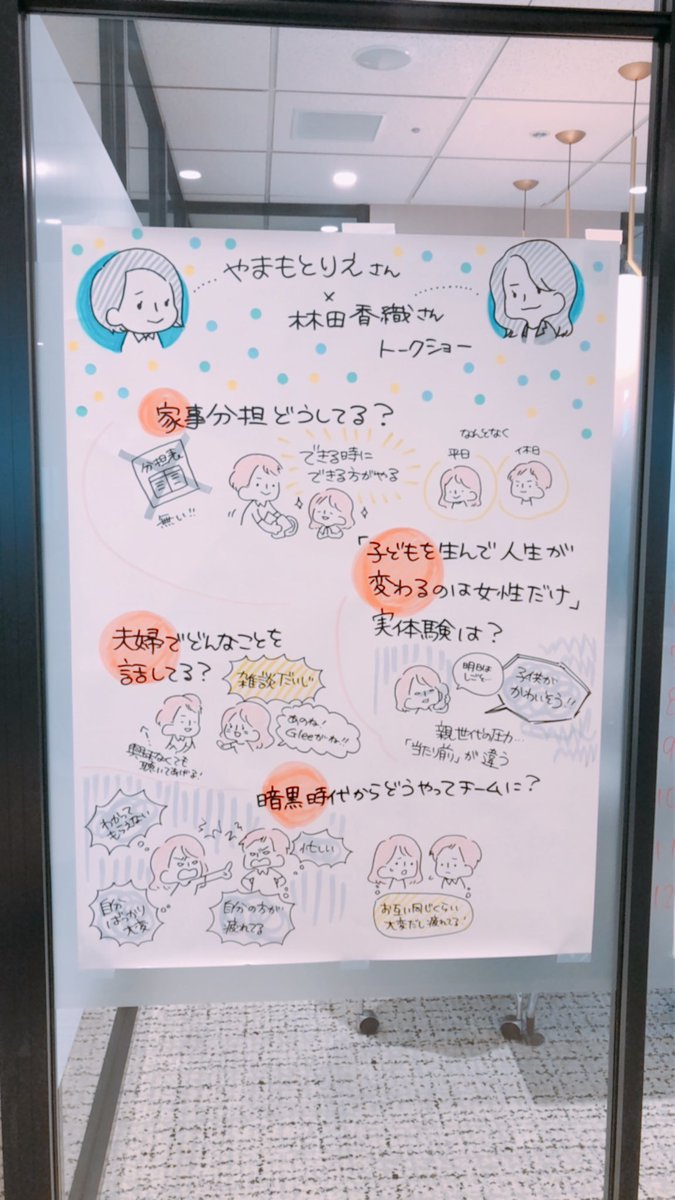 やまもとりえさん
×
林田香織さん
トークショー
家事分担どうしてる?
分担表
無い!!
できる時に
できる方がやる
なんとなく
平日
休日
「子どもを生んで人生が
変わるのは女性だけ」
実体験は?
明日は
しごと…
子供が
かわいそう!!
親世代の圧力…
「当たり前」が違う
夫婦でどんなことを
話してる?
雑談だいじ
あのね!
Gleeがね!!
興味なくても
聴いてあげる!
暗黒時代からどうやってチームに?
わかって
もらえない
自分
ばっかり
大変
忙しい
自分の方が
疲れてる
お互い同じくらい
大変だし疲れてる!